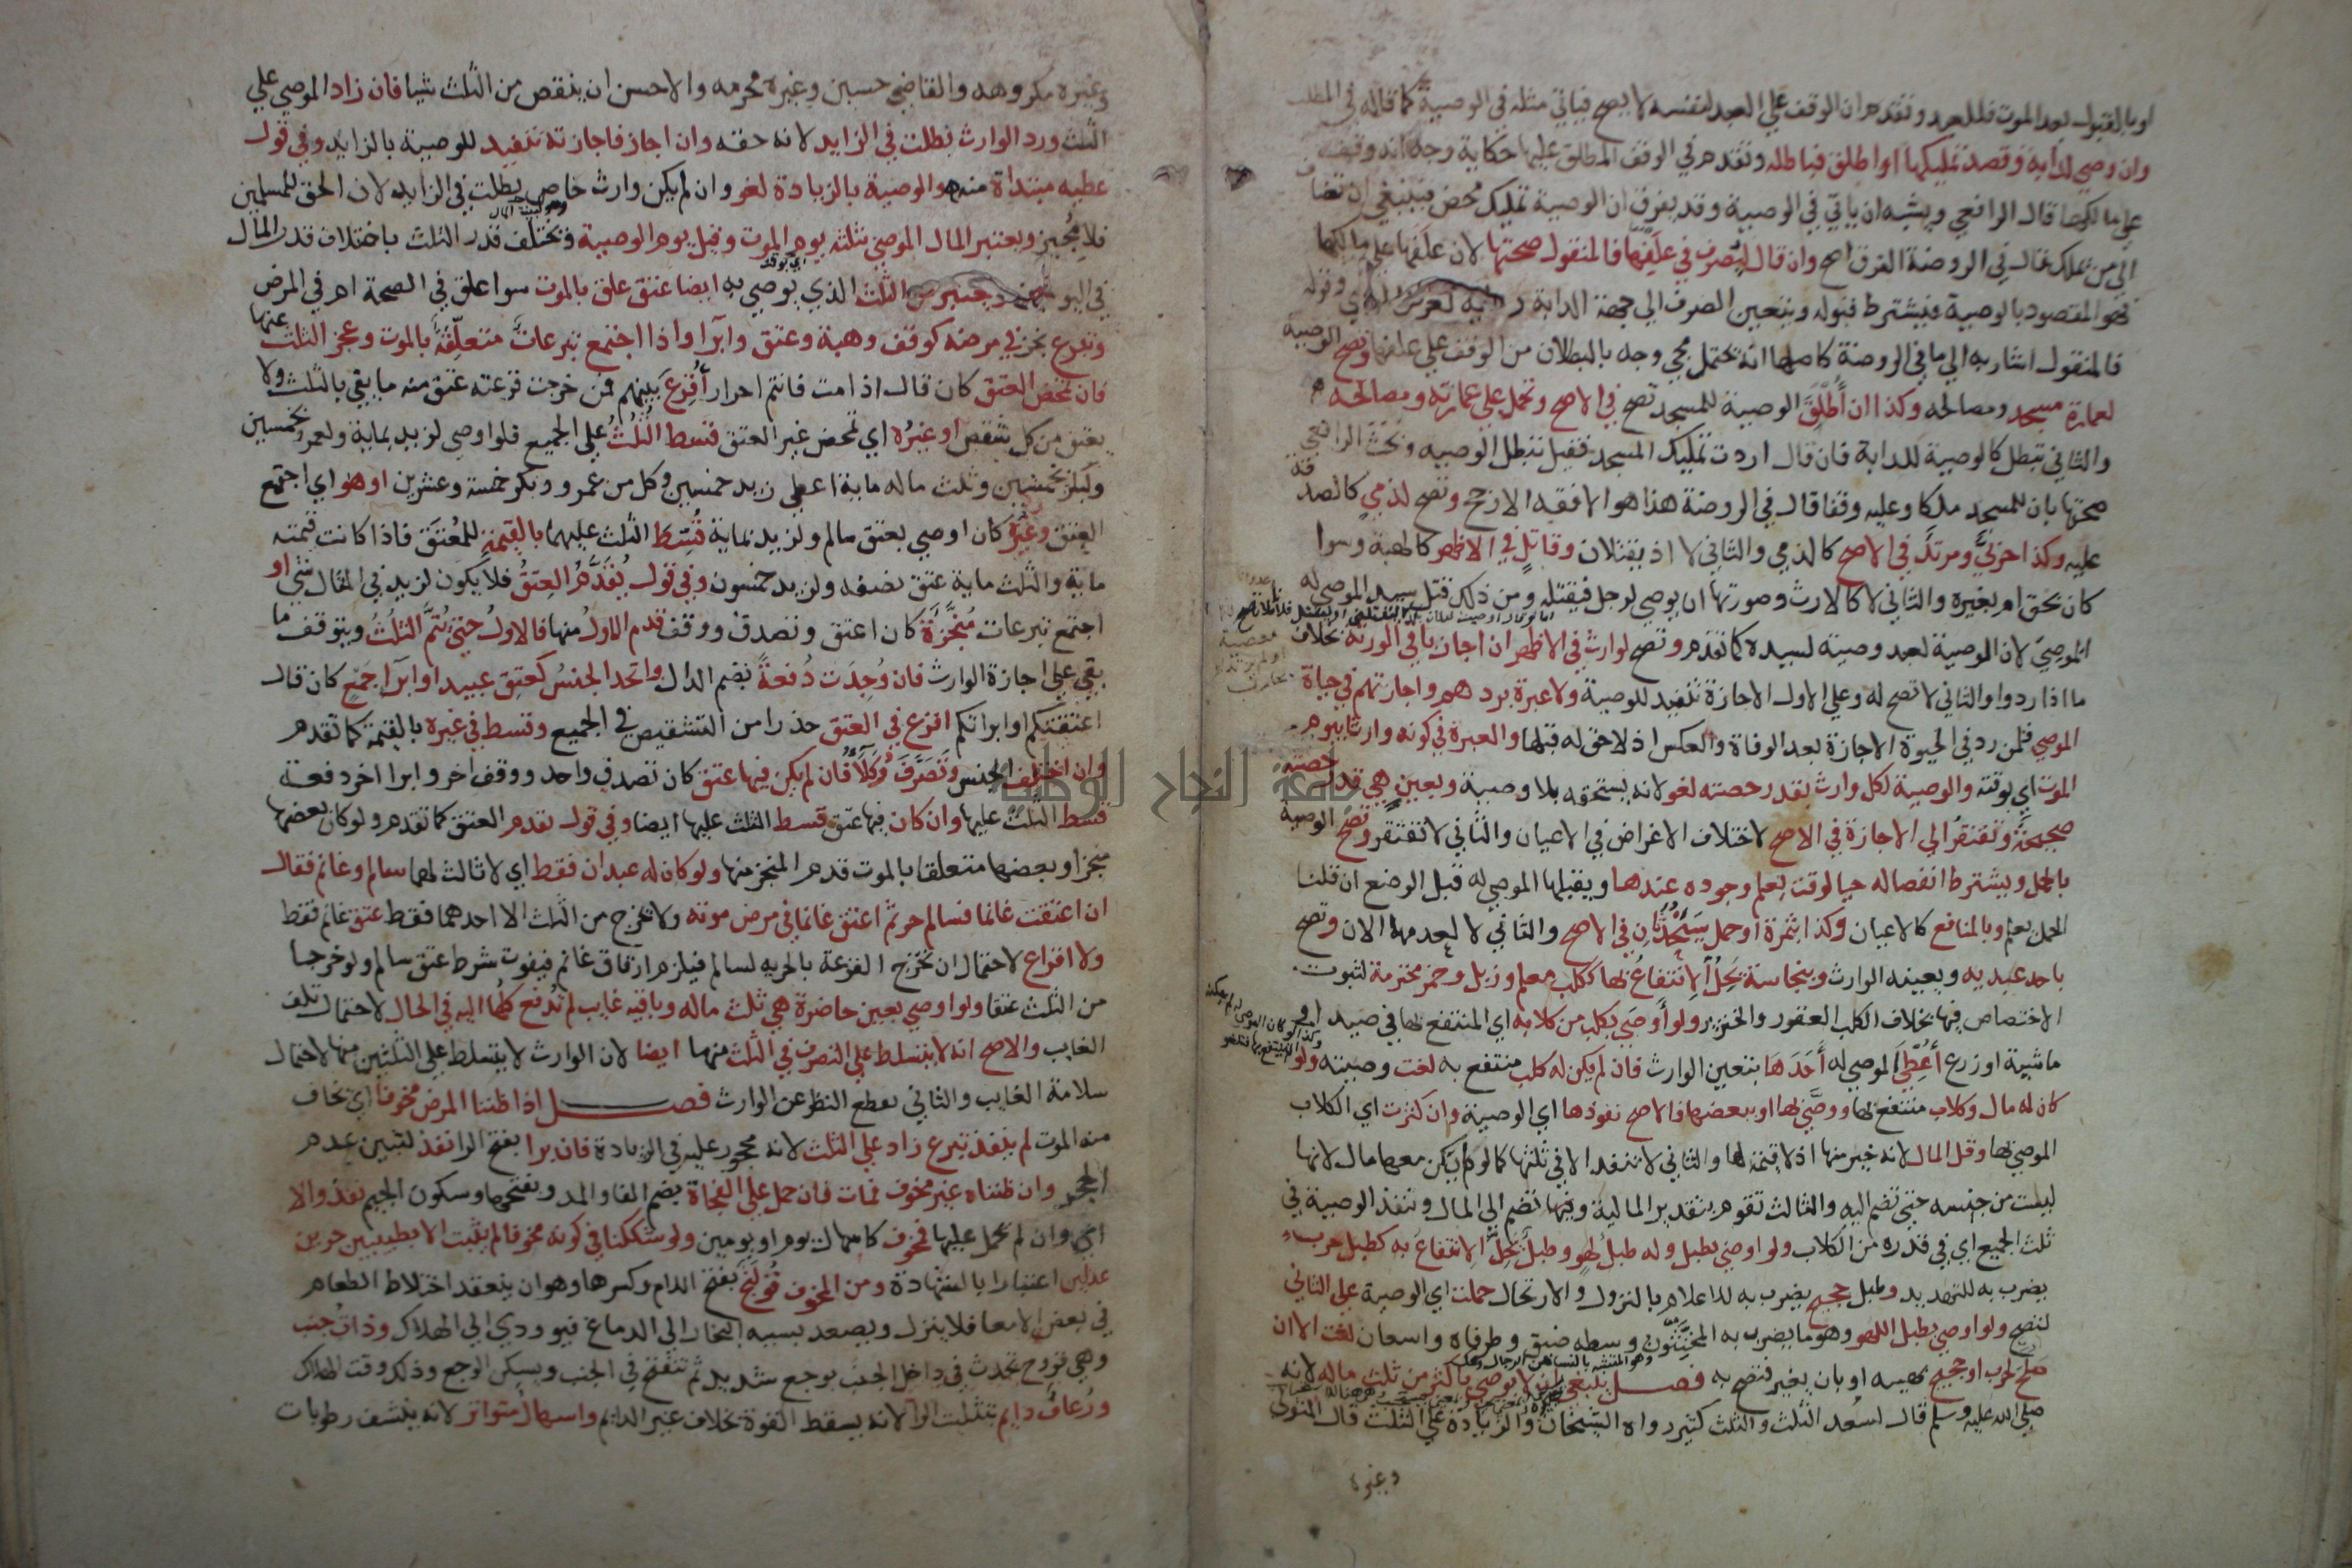 او بالقبول بعد الموت فللعبد وتقدم ان الوقف علي العبد لنفسه لا يصح فياتي مثله في الوصية كما قاله في المطلب
وان وصي لدابة وقصد تمليكها او اطلق فباطله وتقدم في الوقف المطلق عليها حكاية وجه انه وقف
علي مالكها قال الرافعي ويشبه ان ياتي في الوصية وقد يفرق ان الوصية تمليك محض فينبغي ان تضاف
الي من يملك قال في الروضة الفرق اصح وان قال ليصرف في علفها فالمنقول صحتها لان علفها علي مالكها
فهو المقصود بالوصية فيشترط قبوله ويتعين الصرف الي جهة الدابة وقوله
فالمنقول اشار به الي ما في الروضة كاصلها انه يحتمل مجي وجه بالبطلان من الوقف علي علفها وتصح الوصية
لعمارة مسجد ومصالحه وكذا ان أطلق الوصية للمسجد تصح في الاصح وتحمل علي عمارته ومصالحه
والثاني تبطل كالوصية للدابة فان قال اردت تمليك المسجد فقيل تبطل الوصيه وبحث الرافعي
صحتها بان للمسجد ملكا وعليه وقفا قال في الروضة هذا هو الافقه الارجح وتصح لذمي كالصدقة
عليه وكذا حربي ومرتد في الاصح كالذمي والثاني لا اذ يقتلان وقاتل في الاظهر كالهبة وسوا
كان بحق ام بغيره والثاني لا كالارث وصورتها ان يوصي لرجل فيقتله ومن ذلك قتل سيد الموصي له
الموصي لان الوصية لعبد وصية لسيده كما تقدم وتصح لوارث في الاظهر ان اجاز باقي الورثة بخلاف
ما اذا ردوا والثاني لا تصح له وعلي الاول الاجازة تنفيذ للوصية ولا عبرة بردهم واجازتهم في حياة
الموصي فلمن رد في الحيوة الاجازة بعد الوفاة والعكس اذ لا حق له قبلها والعبرة في كونه وارثا بيوم
الموت اي بوقته والوصية لكل وارث بقدر حصته لغو لانه يستحقه بلا وصية وبعين هي قدر حصته
صحيحة وتفتقر الي الاجازة في الاصح لاختلاف الاغراض في الاعيان والثاني لا تفتقر وتصح الوصية
بالحمل ويشترط انفصاله حيا لوقت يعلم وجوده عندها ويقبلها الموصي له قبل الوضع ان قلنا
الحمل يعلم وبالمنافع كالاعيان وكذا بثمرة او حمل سيحدثان في الاصح والثاني لا لعدمها الان وتصح
باحد عبديه ويعينه الوارث وبنجاسة يحل الانتفاع بها ككلب معلم وزبل وخمر محترمة لثبوت
الاختصاص فيها بخلاف الكلب العقور والخنزير ولو اوصي بكلب من كلابه اي المنتفع بها في صيد او
ماشية او زرع أعطي الموصي له أحدها بتعيين الوارث فان لم يكن له كلب منتفع به لغت وصيته ولو
كان له مال وكلاب منتفع بها ووصي بها او ببعضها فالاصح نفوذها اي الوصية وان كثرت اي الكلاب
الموصي بها وقل المال لانه خير منها اذ لا قيمة لها والثاني لا تنفذ الا في ثلثها كما لو لم يكن معها مال لانها
ليست من جنسه حتي تضم اليه والثالث تقوم بتقدير المالية وفيها تضم الي المال وتنفذ الوصية في
ثلث الجميع اي في قدره من الكلاب ولو اوصي بطبل وله طبل لهو وطبل يحل الانتفاع به كطبل حرب
يضرب به للتهديد وطبل حجيج يضرب به للاعلام بالنزول والارتحال حملت اي الوصية علي الثاني
لتصح ولو اوصي بطبل اللهو وهو ما يضرب به المخنثون وسطه ضيق وطرفاه واسعان لغت الا ان
صلح لحرب او حجيج بهيئته او بان يغير فتصح به فصل ينبغي ان لا يوصي باكثر من ثلث ماله لانه
صلي الله عليه وسلم قال لسعد الثلث والثلث كثير رواه الشيخان والزيادة علي الثلث قال المتولي
وغيره
وغيره مكروهه والقاضي حسين وغيره محرمه والاحسن ان ينقص من الثلث شيا فان زاد الموصي علي
الثلث ورد الوارث بطلت في الزايد لانه حقه وان اجاز فاجازته تنفيذ للوصية بالزايد وفي قول
عطيه مبتداة منه والوصية بالزيادة لغو وان لم يكن وارث خاص بطلت في الزايد لان الحق للمسلمين
فلا مجيز ويعتبر المال الموصي بثلثه يوم الموت وقيل يوم الوصية وتختلف قدر الثلث باختلاف قدر المال
في اليومين ويعتبر من الثلث الذي يوصي به ايضا عتق علق بالموت سوا علق في الصحة ام في المرض
وتبرع نجز في مرضه كوقف وهبة وعتق وابرا واذا اجتمع تبرعات متعلقة بالموت وعجز الثلث عنها
فان تمحض العتق كان قال اذا مت فانتم احرار أقرع بينهم فمن خرجت قرعته عتق منه ما يفي بالثلث ولا
يعتق من كل شقص او غيره اي تمحض غير العتق قسط الثلث علي الجميع فلو اوصي لزيد بماية ولعمرو بخمسين
ولبكر بخمسين وثلث ماله ماية اعطي زيد خمسين وكل من عمرو وبكر خمسة وعشرين او هو اي اجتمع
العتق وغيره كان اوصي بعتق سالم ولزيد بماية قسط الثلث عليهما بالقيمة للمعتق فاذا كانت قيمته
ماية والثلث ماية عتق نصفه ولزيد خمسون وفي قول يقدم العتق فلا يكون لزيد في المثال شي او
اجتمع تبرعات منجزة كان اعتق وتصدق ووقف قدم الاول منها فالاول حتي يتم الثلث ويتوقف ما
بقي علي اجازة الوارث فان وجدت دفعة بضم الدال واتحد الجنس كعتق عبيد او ابرا جمع كان قال
اعتقتكم او ابراتكم اقرع في العتق حذرا من التشقيص في الجميع وقسط في غيره بالقيمة كما تقدم
وان اختلف الجنس وتصرف وكلا فان لم يكن فيها عتق كان تصدق واحد ووقف اخر وابرا اخر دفعة
قسط الثلث عليها وان كان فيها عتق قسط الثلث عليها ايضا وفي قول يقدم العتق كما تقدم ولو كان بعضها
منجزا وبعضها متعلقا بالموت قدم المنجز منها ولو كان له عبدان فقط اي لا ثالث لهما سالم وغانم فقال
ان اعتقت غانما فسالم حر ثم اعتق غانما في مرض موته ولا يخرج من الثلث الا احدهما فقط عتق غانم فقط
ولا اقراع لاحتمال ان تخرج القرعة بالحريه لسالم فيلزم ارقاق غانم فيفوت شرط عتق سالم ولو خرجا
من الثلث عتقا ولو اوصي بعين حاضرة هي ثلث ماله وباقيه غايب لم تدفع كلها اليه في الحال لاحتمال تلف
الغايب والاصح انه لا يتسلط علي التصرف في الثلث منها ايضا لان الوارث لا يتسلط علي الثلثين منها لاحتمال
سلامة الغايب والثاني يقطع النظر عن الوارث فصل اذا ظننا المرض مخوفا اي يخاف
منه الموت لم ينفذ تبرع زاد علي الثلث لانه محجور عليه في الزيادة فان برا بفتح الرا نفذ لتبين عدم
الحجر وان ظنناه غير مخوف فمات فان حمل علي الفجاة بضم الفا والمد وبفتحها وسكون الجيم نفذ والا
اي وان لم يحمل عليها فمخوف كاسهال يوم او يومين ولو شككنا في كونه مخوفا لم يثبت الا بطبيبين حرين
عدلين اعتبارا بالشهادة ومن المخوف قولنج بفتح اللام وكسرها وهو ان ينعقد اختلاط الطعام
في بعض الامعا فلا ينزل ويصعد بسببه البخار الي الدماغ فيودي الي الهلاك وذات جنب
وهي قروح تحدث في داخل الجنب بوجع شديد ثم تنفتح في الجنب ويسكن الوجع وذلك وقت الهلاك
ورعاف دايم بتثليث الرا لانه يسقط القوة بخلاف غير الدايم واسهال متواتر لانه ينشف رطوبات
جامعة النجاح الوطنية